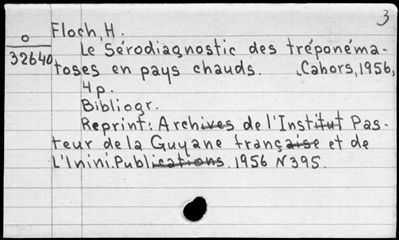 3
Floch, H.
O
32640
Le Sérodiagnostic des tréponéma-
toses en pays chauds. Cahors, 1956,
4 p.
Bibliogr.
Reprint: Archives de l'Institut Pas-
teur de la Guyane française et de
L'Inini. Publications. 1956 N 395.